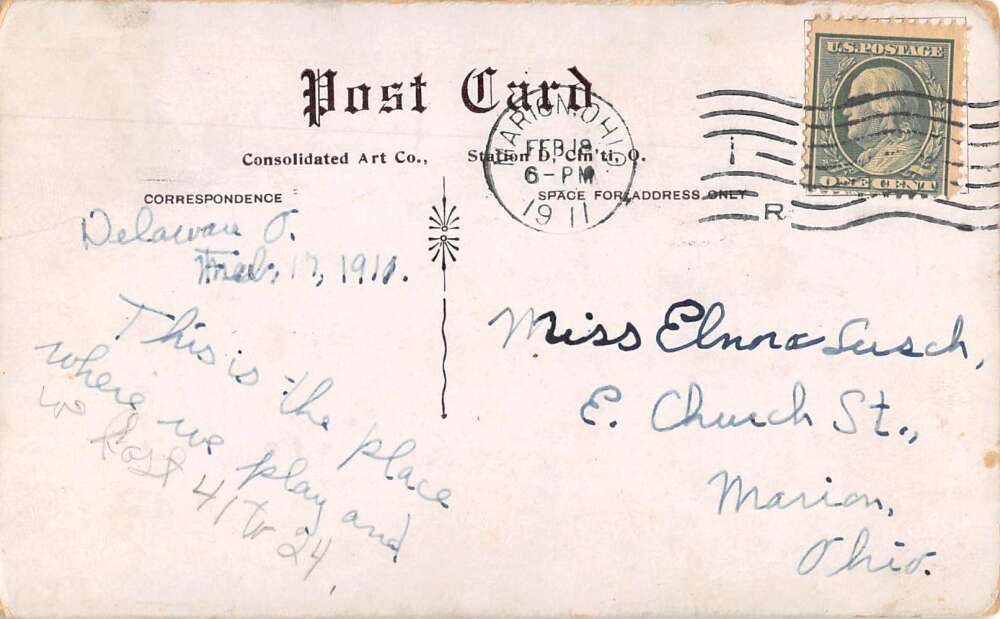 Post Card
Consolidated Art Co., Station D, Cin'ti, O.
CORRESPONDENCE
SPACE FOR ADDRESS ONLY
U.S. POSTAGE
ONE CENT
MARION, OHIO
FEB 18
6-PM
1911
R
Delaware O.
Feb. 17, 1911.
This is the place
where we play and
we lost 41 to 24.
Miss Elnora Lusch,
E. Church St.,
Marion,
Ohio.